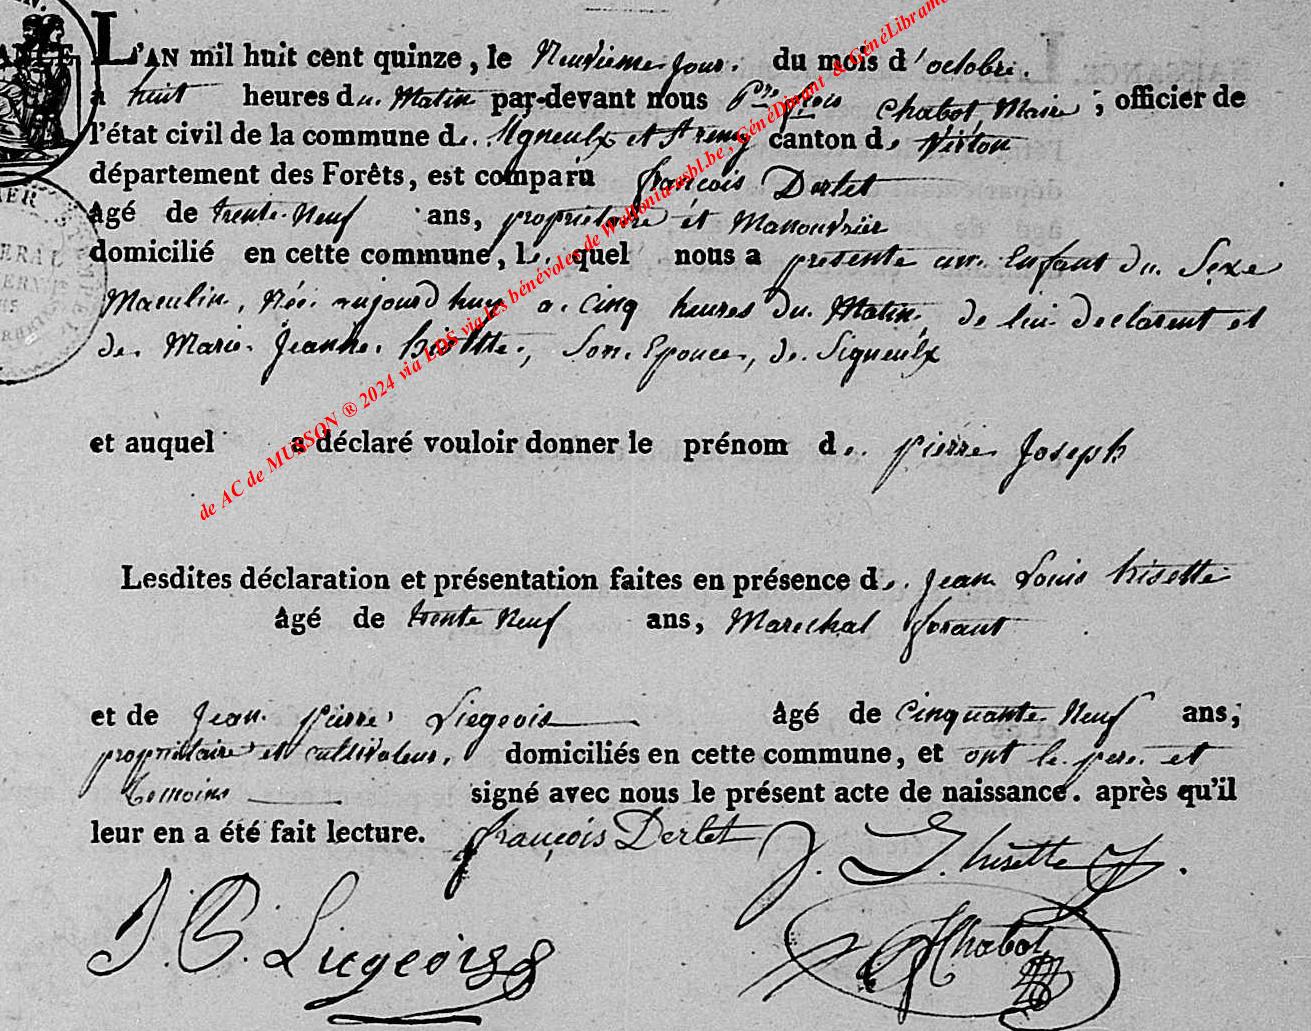 L'AN mil huit cent quinze, le Neuvieme jour. du mois d'octobre.
a huit heures du. Matin par-devant nous P.re f.cois Chabot Maire ; officier de
l'état civil de la commune de. Signeulx et St remy canton de Virton
département des Forêts, est comparu françois Derlet
âgé de trente-Neuf ans, propriétaire et Manouvrier
domicilié en cette commune, Le. quel nous a présenté un. Enfant du. Sexe
Masculin, Née. aujourd huy a. Cinq heures du. Matin, de lui declarent et
de. Marie. Jeanne. hisette, Son. Epouce, de. Signeulx
et auquel a déclaré vouloir donner le prénom de. pierre Joseph
Lesdites déclaration et présentation faites en présence de. jean Louis hisette
âgé de trente Neuf ans, Marechal ferant
et de Jean pierre Liegeois âgé de Cinquante-Neuf ans,
propriétaire et cultivateur, domiciliés en cette commune, et ont le pere et
temoins signé avec nous le présent acte de naissance. après qu'il
leur en a été fait lecture. françois Derlet J. L. hisette
J. P. Liegeois Chabot
de AC de MUSSON ® 2024 via LDS via les bénévoles de Wallonia asbl.be , GénéDinant & GénéLibramont